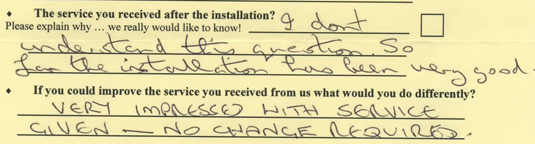 ♦ The service you received after the installation?
Please explain why ... we really would like to know! I dont
understand this question. So
far the installation has been very good.
♦ If you could improve the service you received from us what would you do differently?
VERY IMPRESSED WITH SERVICE
GIVEN – NO CHANGE REQUIRED.